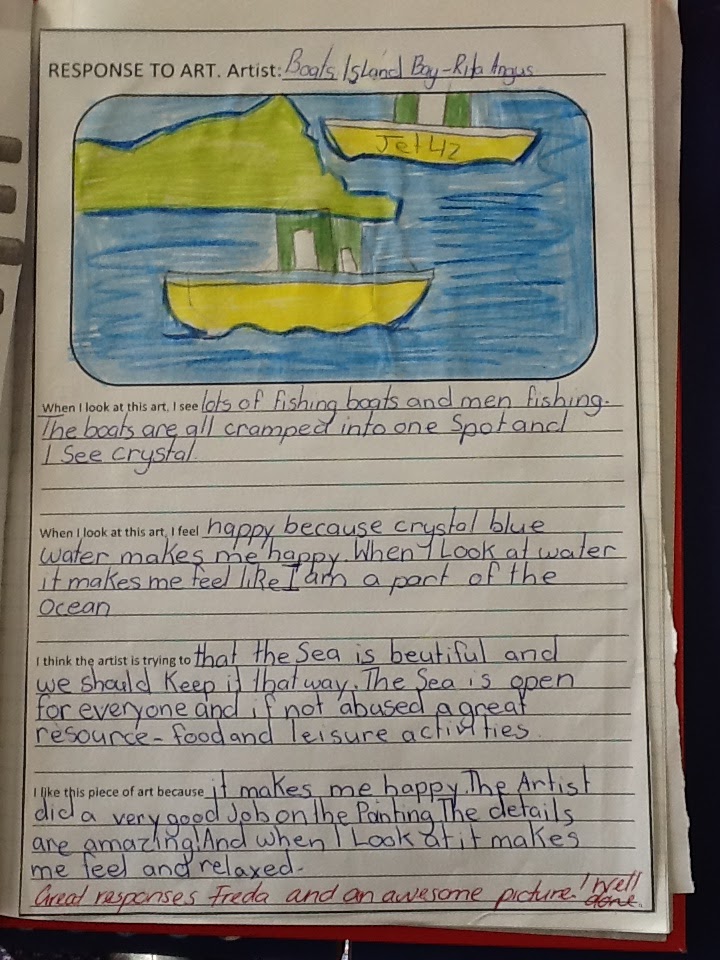 RESPONSE TO ART. Artist: Boats, Island Bay - Rita Angus
Jet 42
When I look at this art, I see lots of fishing boats and men fishing.
The boats are all cramped into one Spot and
I See crystal.
When I look at this art, I feel happy because crystal blue
water makes me happy. When I Look at water
it makes me feel like I am a part of the
Ocean
I think the artist is trying to that the Sea is beutiful and
we should Keep it that way. The Sea is open
for everyone and if not abused a great
resource - food and leisure activities.
I like this piece of art because it makes me happy. The Artist
did a very good Job on the Panting. The details
are amazing! And when I Look at it makes
me feel and relaxed.
Great responses Freda and an awesome picture! Well
done.